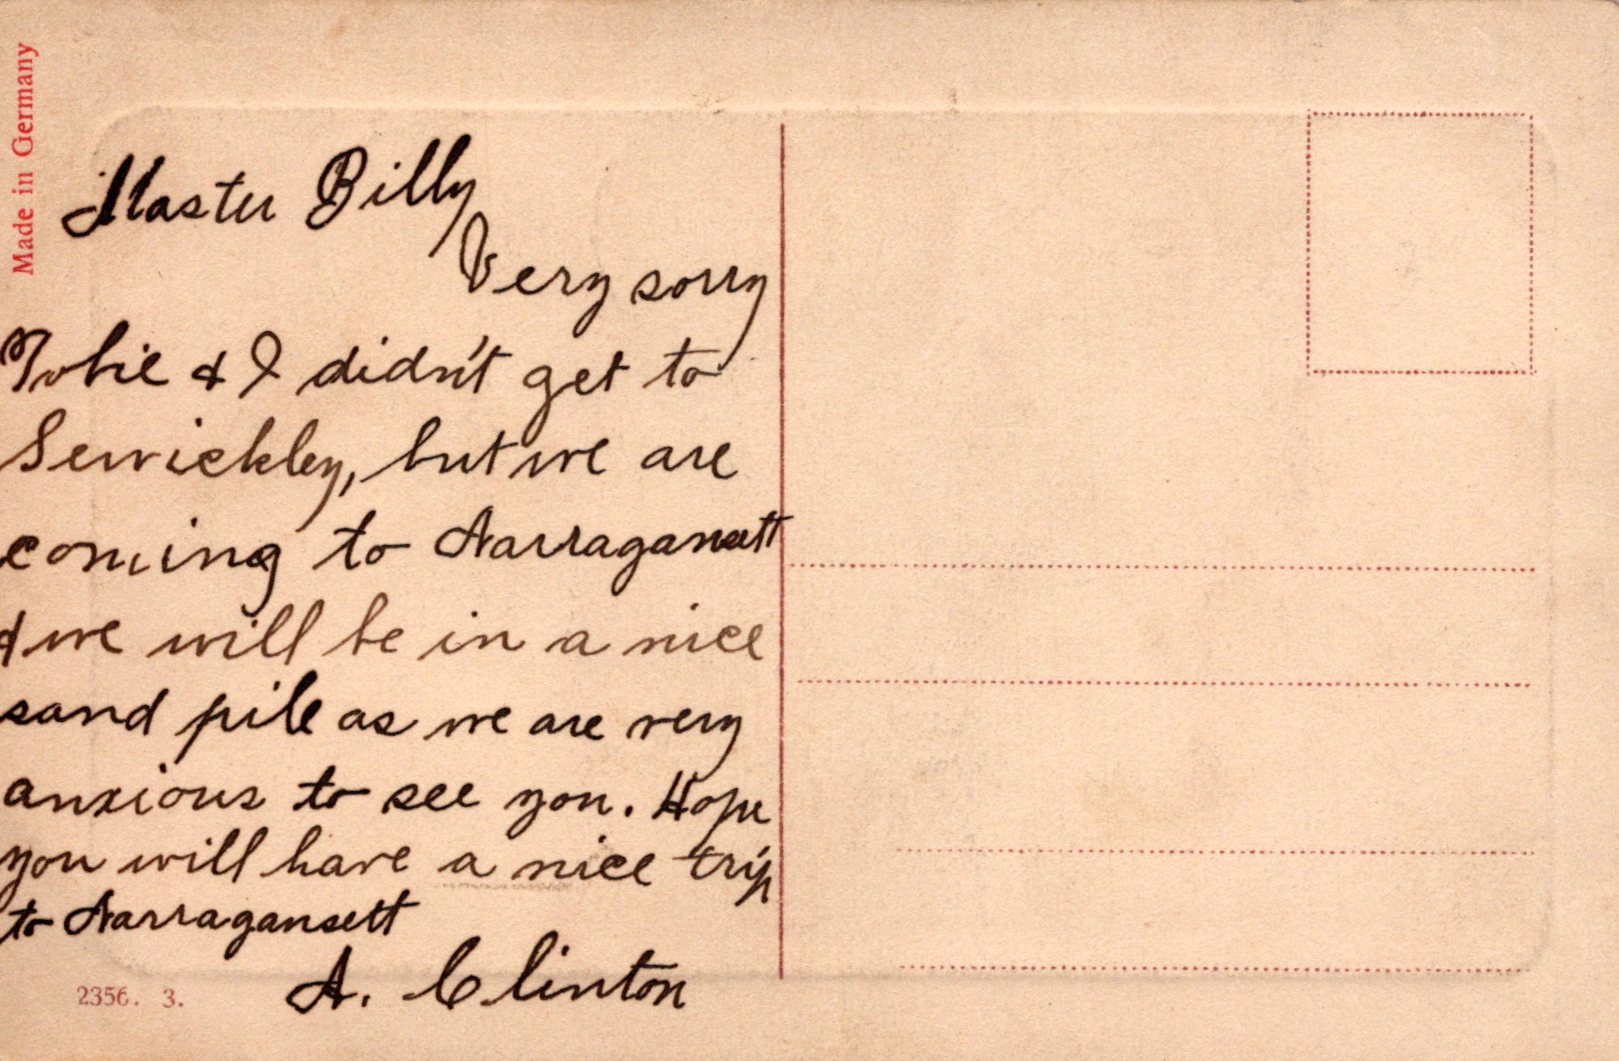 Made in Germany
Master Billy
Very sorry
Tobie & I didn't get to
Sewickley, but we are
coming to Narragansett
& we will be in a nice
sand pile as we are very
anxious to see you. Hope
you will have a nice trip
to Narragansett
A. Clinton
2356. 3.